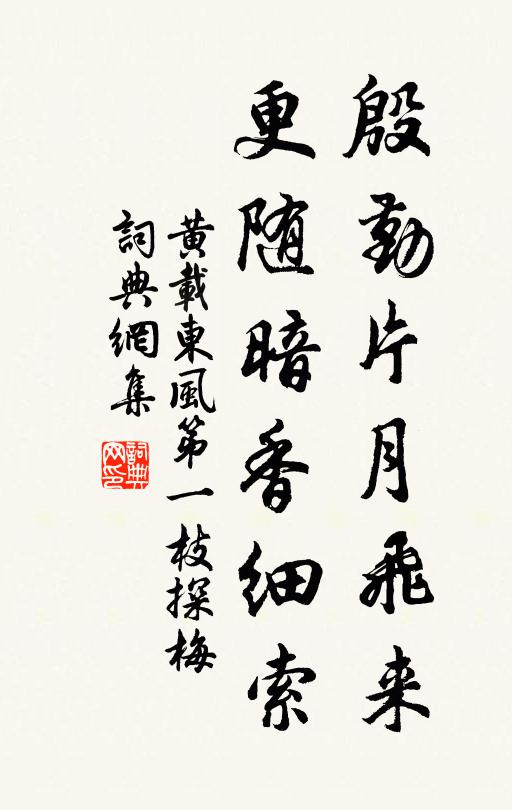 殷勤片月飛来
更随暗香細索
黃載東風第一枝探梅
詞典網集
詞典网印